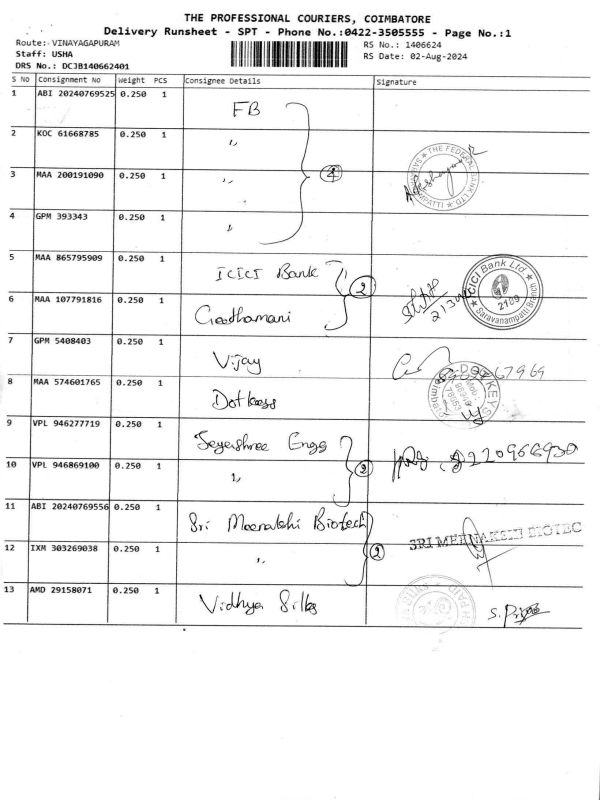 THE PROFESSIONAL COURIERS, COIMBATORE
Delivery Runsheet - SPT - Phone No.:0422-3505555 - Page No.:1
Route: VINAYAGAPURAM
RS No.: 1406624
Staff: USHA
RS Date: 02-Aug-2024
DRS No.: DCJB140662401
S No Consignment No Weight PCS Consignee Details Signature
1 ABI 20240769525 0.250 1 FB
2 KOC 61668785 0.250 1 "
3 MAA 200191090 0.250 1 "
THE FEDERAL BANK LTD
4 GPM 393343 0.250 1 "
5 MAA 865795909 0.250 1 ICICI Bank 2
ICICI Bank Ltd.
2109
Saravanampatti Branch
6 MAA 107791816 0.250 1 Geethamani
7 GPM 5408403 0.250 1 Vijay
8 MAA 574601765 0.250 1 Dotkeys
KEYS
9 VPL 946277719 0.250 1 Jeyashree Engg 2
10 VPL 946869100 0.250 1 "
11 ABI 20240769556 0.250 1 Sri Meenakshi Biotech 2
SRI MEENAKSHI BIOTEC
12 IXM 303269038 0.250 1 "
13 AMD 29158071 0.250 1 Vidhya Silks